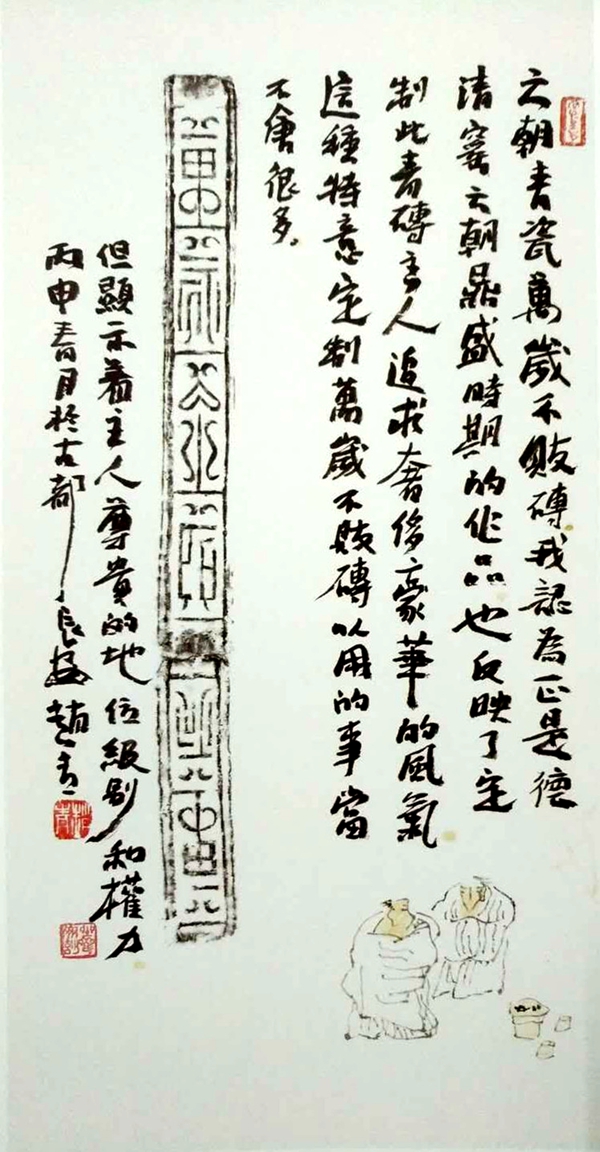 六朝青瓷萬歲不敗磚我認為正是德
清窯六朝鼎盛時期的作品也反映了定
制此青磚主人追求奢侈豪華的風氣
這種特意定制萬歲不敗磚以用的事當
不會很多
但顯示着主人尊貴的地位級别和權力
丙申春月於古都長安趙